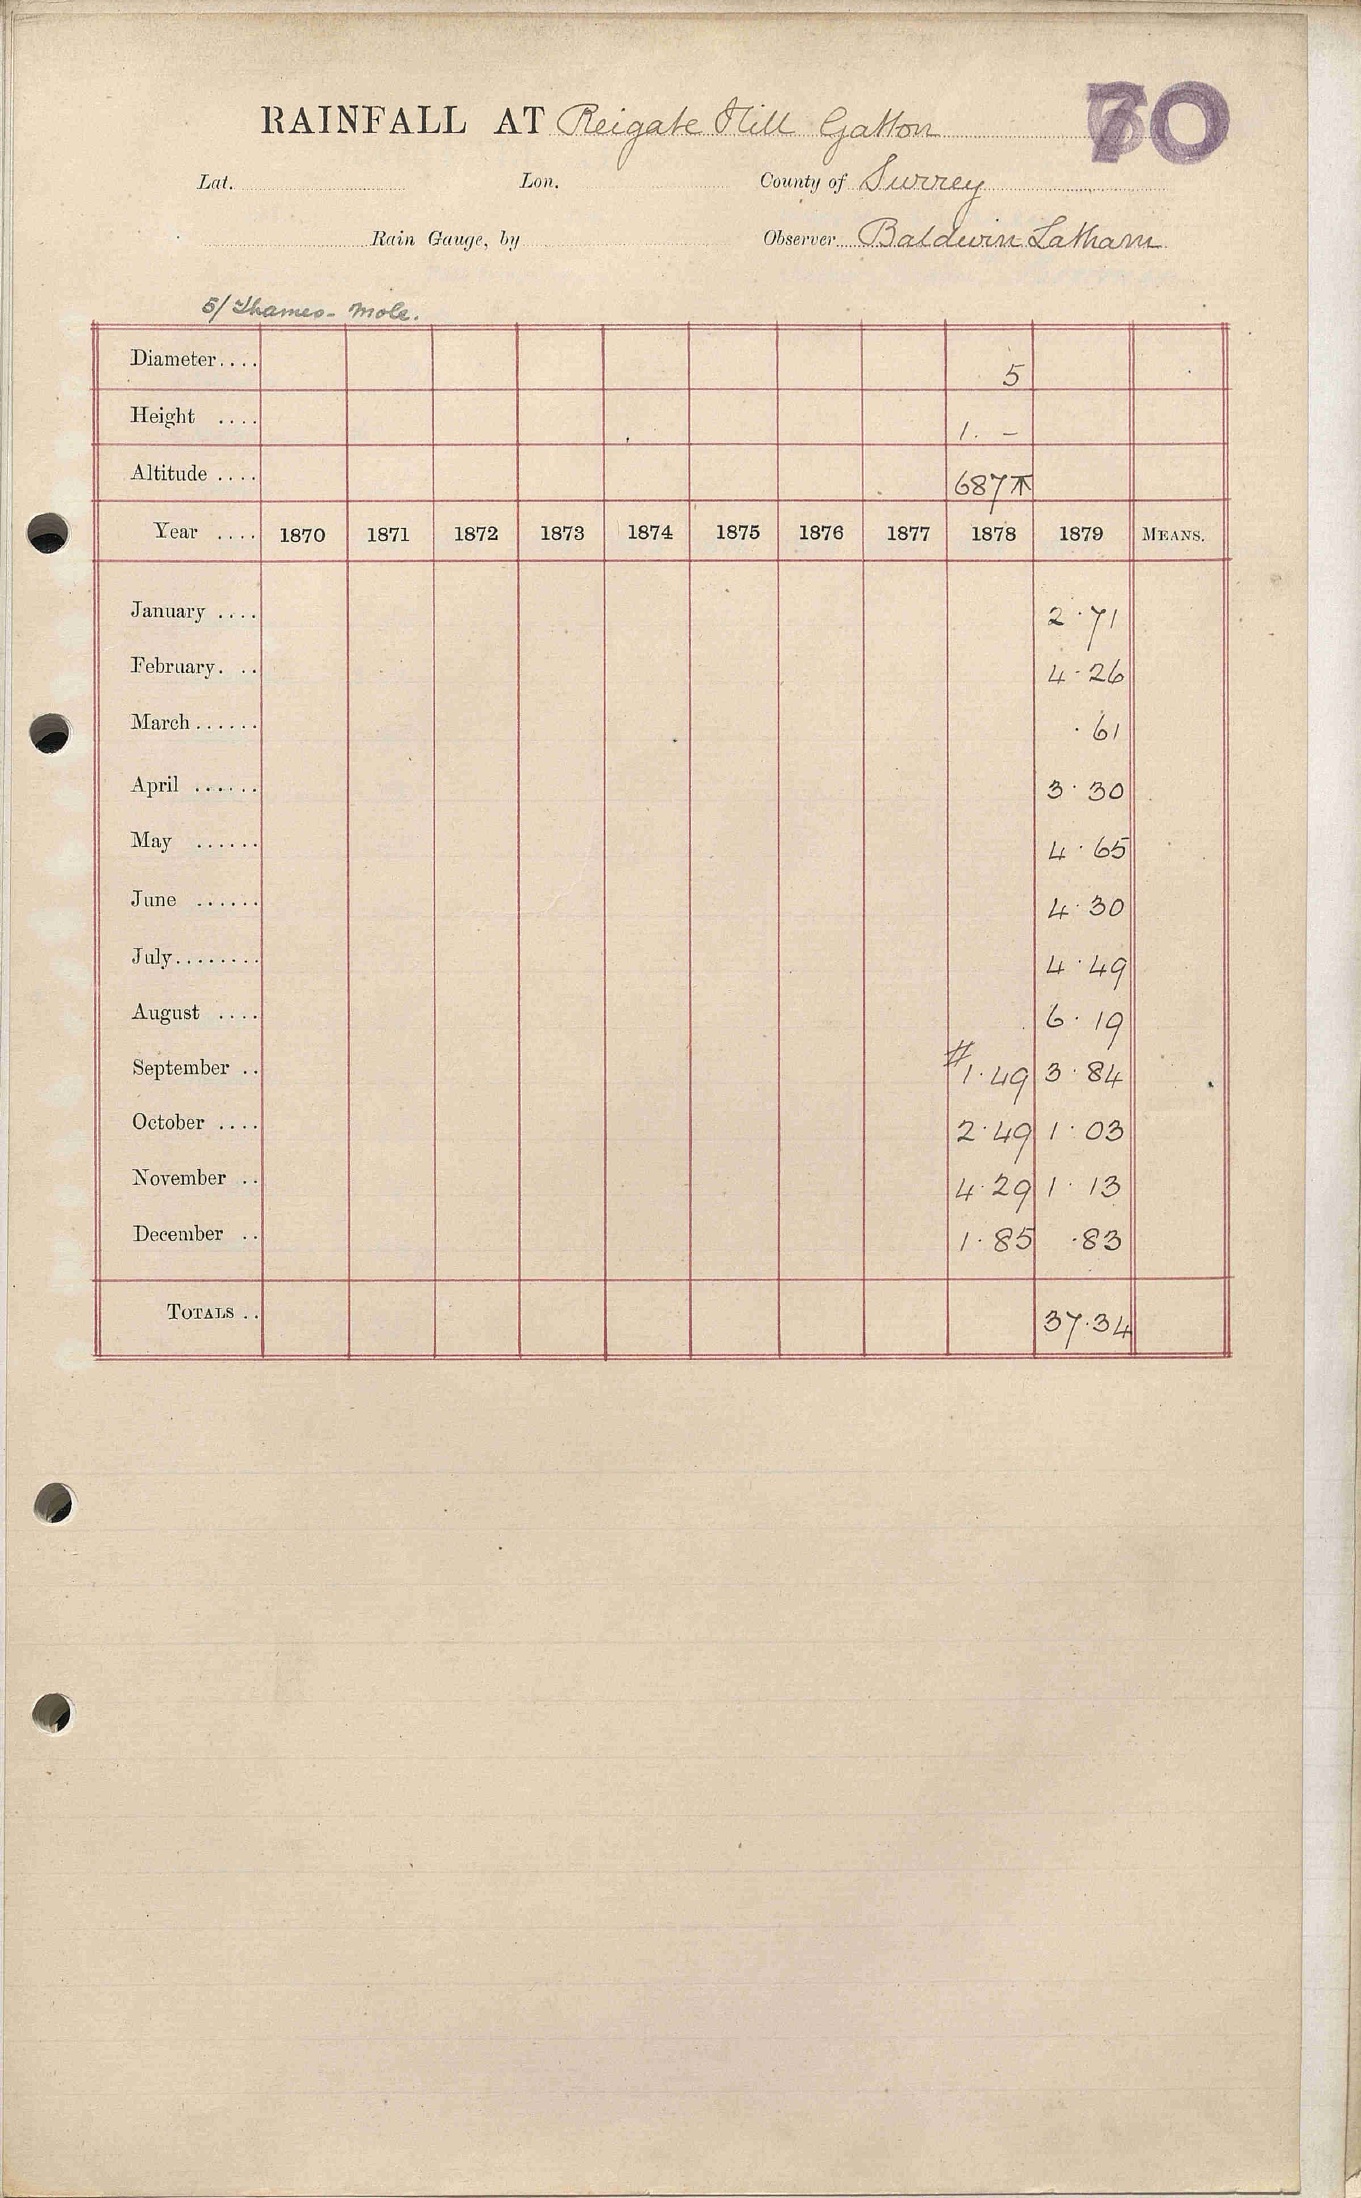 RAINFALL AT Reigate Hill Gatton 70
Lat. Lon. County of Surrey
Rain Gauge, by Observer Baldwin Latham
5/ Thames - Mole.
Diameter.... 5
Height .... 1. -
Altitude .... 687
Year .... 1870 1871 1872 1873 1874 1875 1876 1877 1878 1879 MEANS.
January .... 2.71
February. .. 4.26
March...... .61
April ...... 3.30
May ...... 4.65
June ...... 4.30
July........ 4.49
August .... 6.19
September .. #1.49 3.84
October .... 2.49 1.03
November .. 4.29 1.13
December .. 1.85 .83
TOTALS .. 37.34